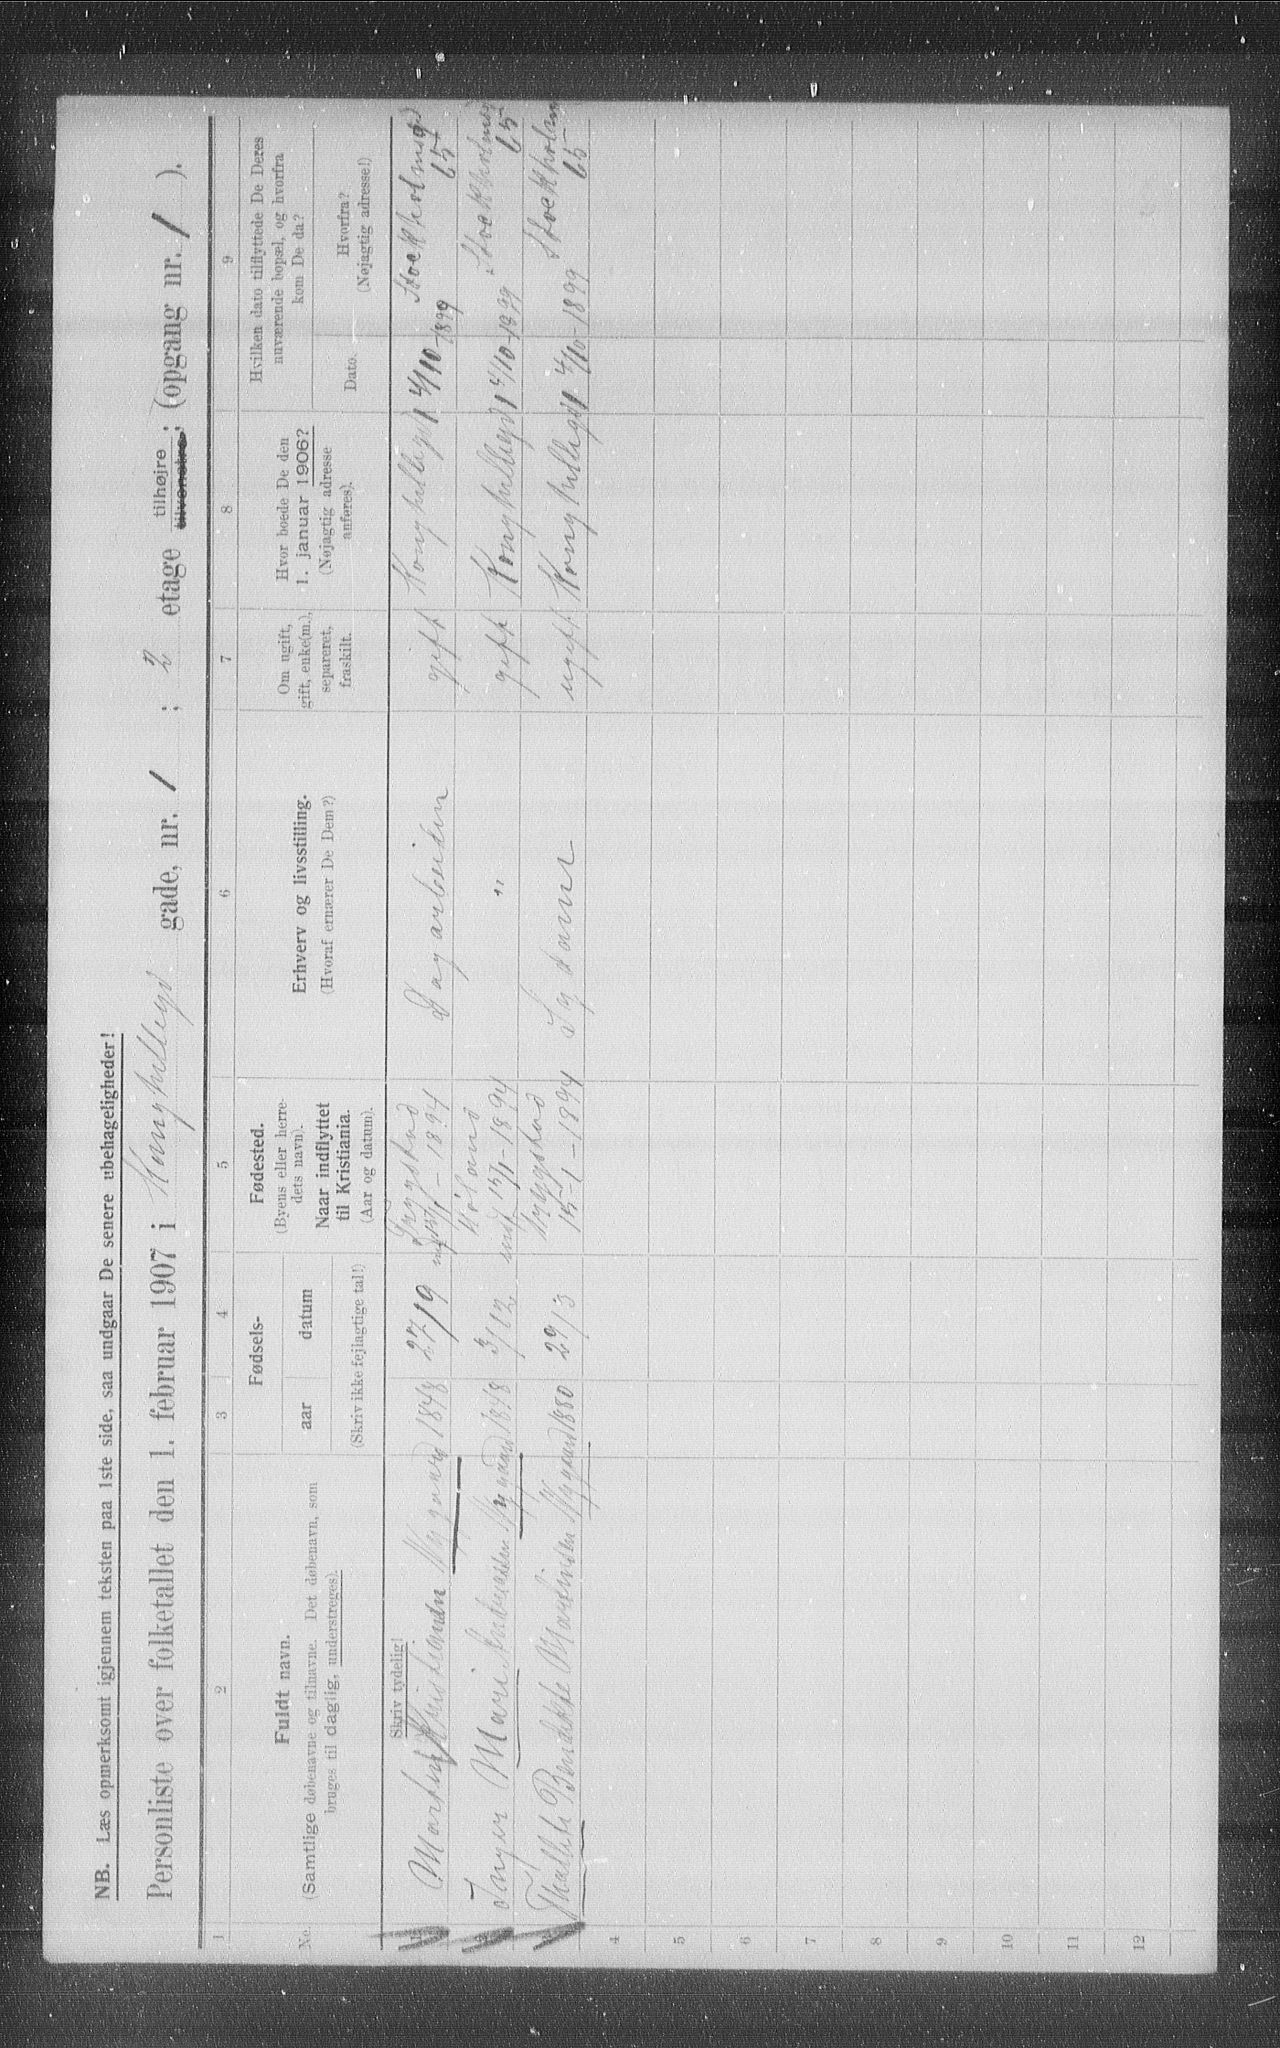 NB. Læs opmerksomt igjennem teksten paa 1ste side, saa undgaar De senere ubehageligheder!
Personliste over folketallet den 1. februar 1907 i Konghellegd gade, nr. 1 ; 2 etage tilhøjre ; (opgang nr. 1 ).
tilvenstre
1 2 3 4 5 6 7 8 9
No.
Fuldt navn.
(Samtlige døbenavne og tilnavne. Det døbenavn, som
bruges til daglig, understreges).
Fødsels-
aar datum
(Skriv ikke fejlagtige tal!)
Fødested.
(Byens eller herre-
dets navn).
Naar indflyttet
til Kristiania.
(Aar og datum).
Erhverv og livsstilling.
(Hvoraf ernærer De Dem?)
Om ugift,
gift, enke(m.),
separeret,
fraskilt.
Hvor boede De den
1. januar 1906?
(Nøjagtig adresse
anføres).
Hvilken dato tilflyttede De Deres
nuværende bopæl, og hvorfra
kom De da?
Dato.
Hvorfra?
(Nøjagtig adresse!)
Skriv tydelig!
1 Martin Kristiansen Nygaard 1848 27/9 Trygstad 15/1 - 1894 Dagarbeider gift Konghellegd 1 4/10 - 1899 Stockholmsgd 65
2 Inger Marie Andreassen Nygaard 1848 3/12 Høland indf 15/1 - 1894 " gift Konghellegd 1 4/10 - 1899 Stockholmsgd 65
3 Thallete Bendikke Martinsen Nygaard 1880 29/3 Trygstad 15-1-1894 Sydame ugift Konghellegd 1 4/10 - 1899 Stockholm 65
4
5
6
7
8
9
10
11
12